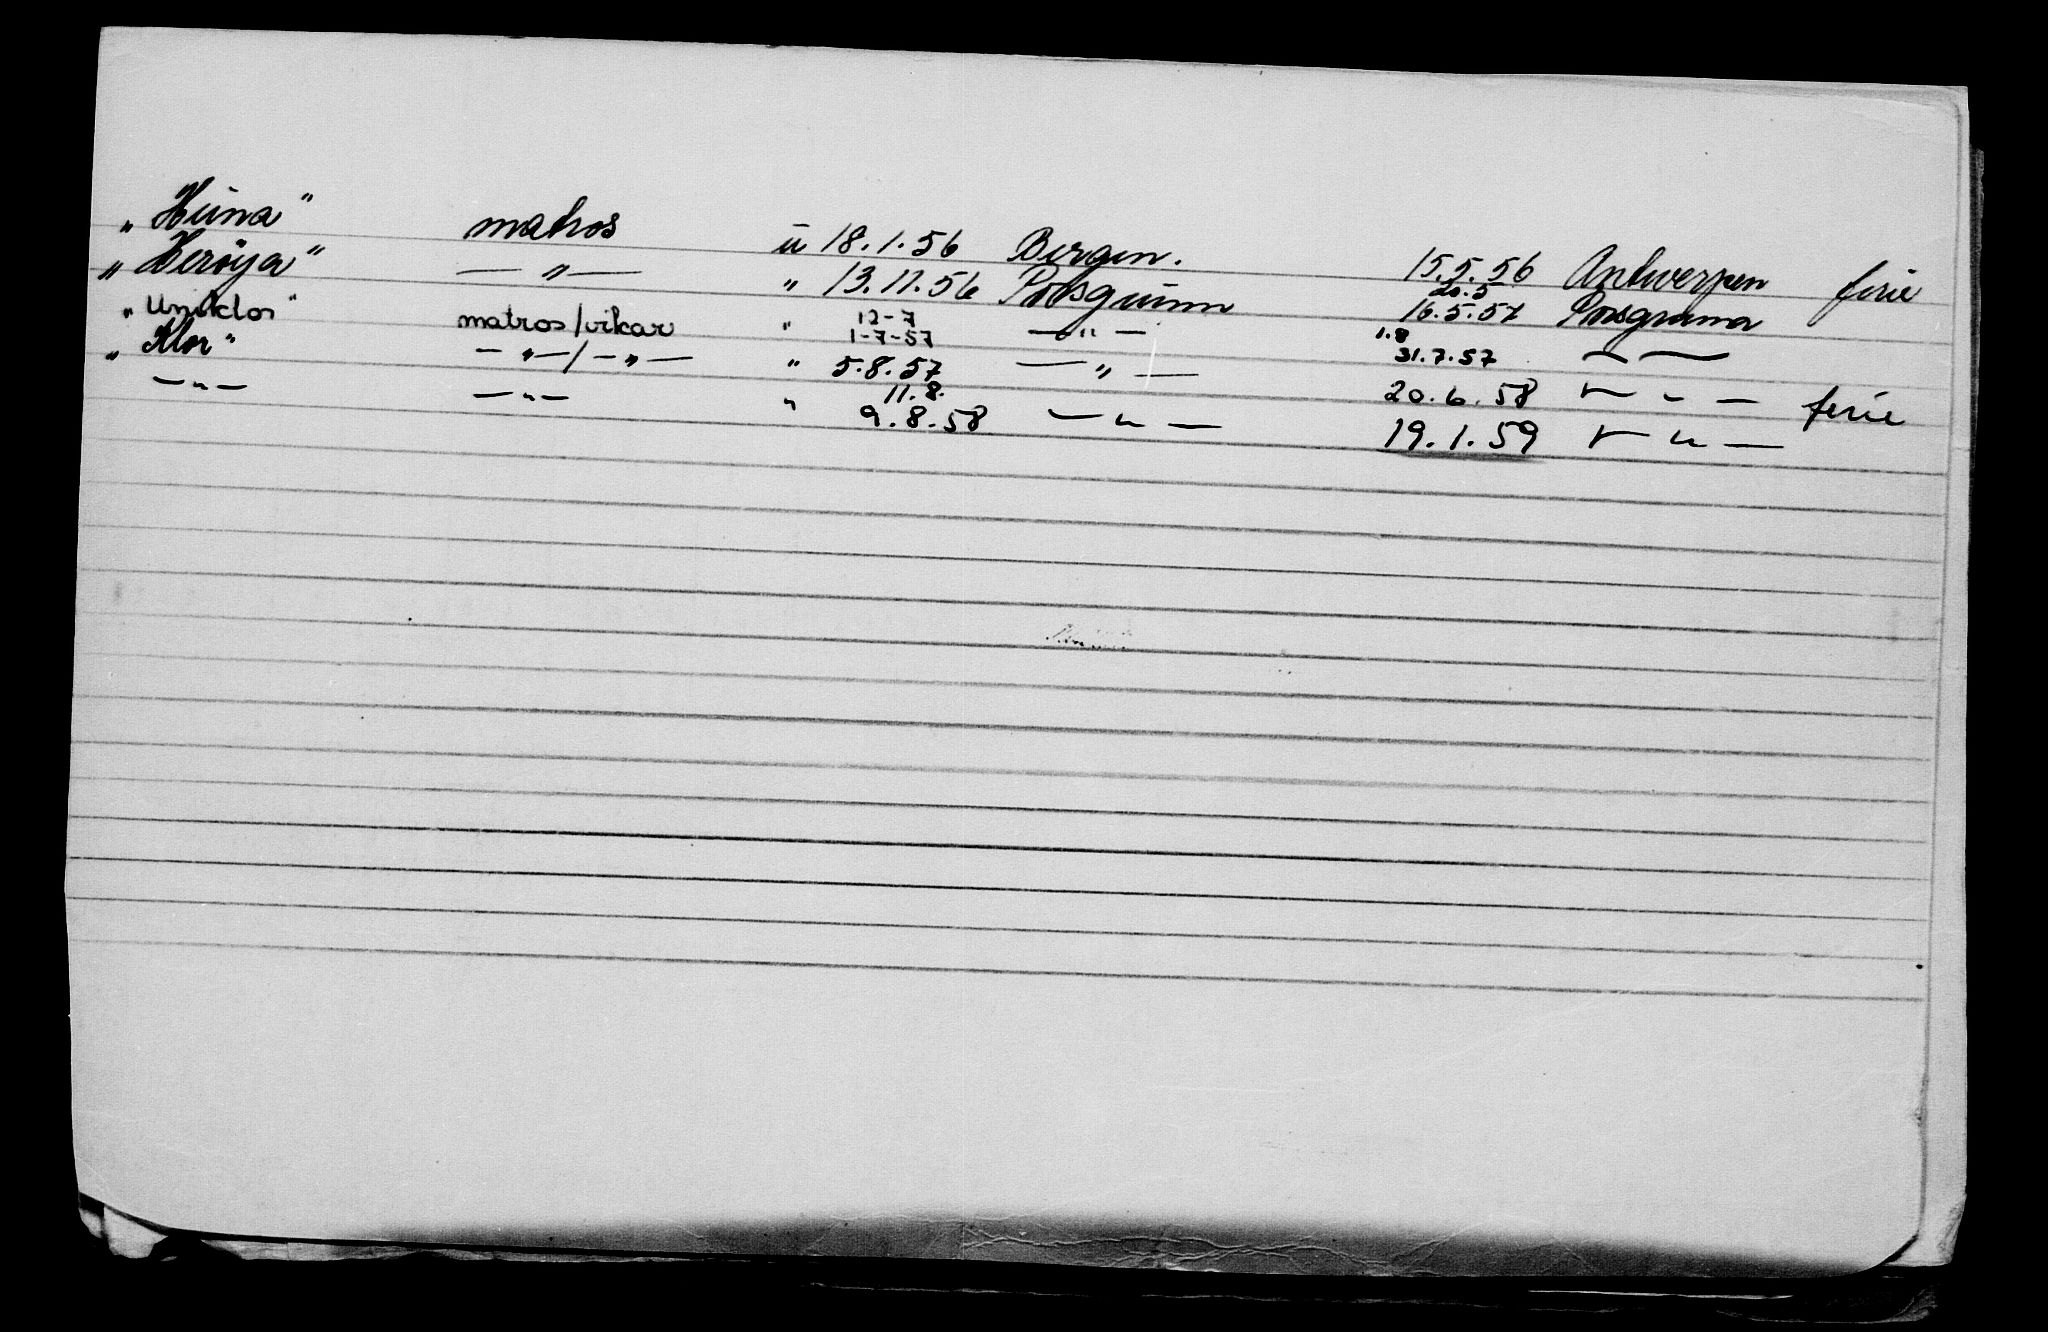 „ Heina " matros u 18.1.56 Bergen. 15.5.56 Antwerpen ferie
„ Herøya " — „ — „ 13.11.56 Porsgrunn 20.5 16.5.57 Porsgrunn
„ Uniklos " matros/vikar „ 12-7 1-7-57 — „ — 1.8 31.7.57 — —
„ Klor " — „ — / — „ — „ 5.8.57 — „ — 20.6.58 — „ — ferie
— „ — — „ — „ 11.8. 9.8.58 — „ — 19.1.59 — „ —